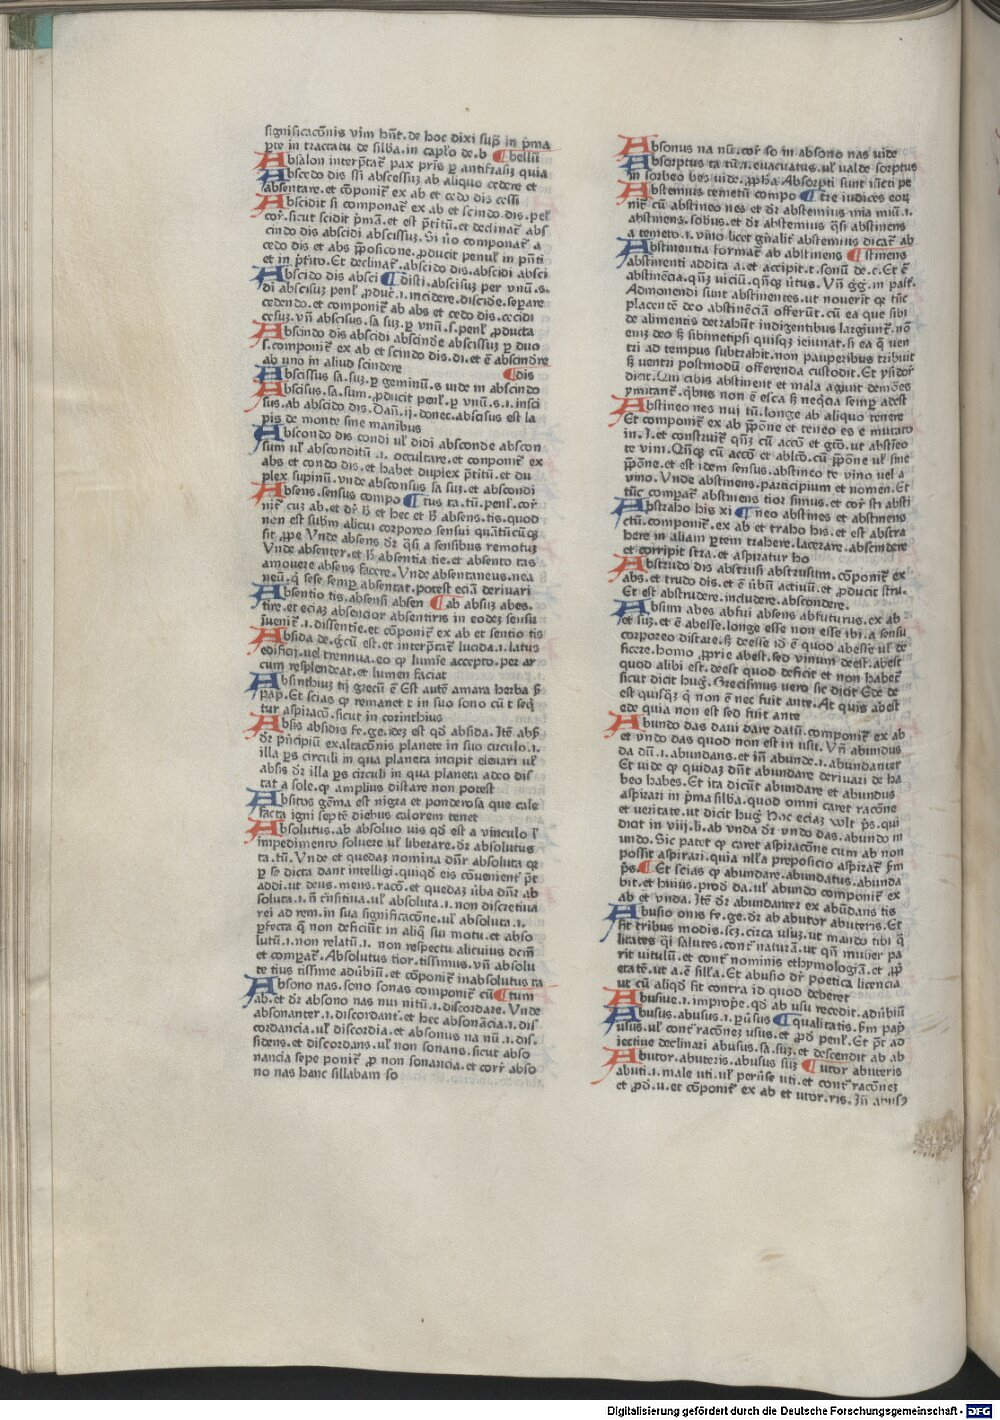 significacōnis vim hn̄t. de hoc dixi sup̄ in p̄ma
p̱te in tractatu de sillba. in cap̄lo de. b ¶bellū
Absalon interp̄tat᷑ pax pr̄is ꝑ antifrasiꝫ quia
Abscedo dis ssi abscessuꝫ ab aliquo cedere et
absentare. et cōponit᷑ ex ab et cedo dis cessi
Abscidit si componat᷑ ex ab et scindo. dis. pel̄
cor̄. sicut scidit p̄mā. et est p̄titū. et declinat᷑ abs
cindo dis abscidi abscissuꝫ. Si n̄o componat᷑ a
cedo dis et abs p̄posicone. ꝓducit penul̄ in p̄nti
et in p̄tito. Et declinat᷑. abscido dis. abscidi absci
Abscido dis absci ¶disti. abscisuꝫ per vnū. s.
di abscisuꝫ penl̄ ꝓduc̄. i. incidere. discidꝫe. separe
cedendo. et componit᷑ ab abs et cedo dis. cecidi
cesuꝫ. vn̄ abscisus. sa suꝫ. ꝑ vnū. s. penl̄ ꝓducta
Abscindo dis abscidi abscindꝫe abscissuꝫ ꝑ duo
s. componit᷑ ex ab et scindo dis. di. et ē abscindꝫe
ab vno in aliud scindere ¶dis
Abscissus sa. suꝫ. ꝑ geminū. s vide in abscindo
Abscisus. sa. sum. ꝓducit penl̄. ꝑ vnū. s. i. insci
sus. ab abscido dis. Dan̄. ij. donec. abscisus est la
pis de monte sine manibus
Abscondo dis condi ul̄ didi absconde abscon
sum ul̄ absconditū .i. occultare. et conponit᷑ ex
abs et condo dis. et habet duplex p̄titū. et du
plex supinū. vnde absconsus sa suꝫ. et abscondi
Absens. sensus compo ¶tus ta. tū. penl̄. cor̄
nit᷑ cuꝫ ab. et dr̄ ħ et hec et ħ absens. tis. quod
non est subm̄ alicui corporeo sensui quātūcūqꝫ
sit ꝓpe Vnde absens dr̄ q̄si a sensibus remotuꝫ
Vnde absenter. et ħ absentia tie. et absento tas
amouere absens facere. Vnde absentaneus. nea
neū. q̄ sese semp̱ absentat. potest eciā derivari
Absentio tis. absensi absen ¶ab absuꝫ abes.
tire. et eciaꝫ absencior absentiris in eodeꝫ sensu
īuenit᷑ .i. dissentie. et cōponit᷑ ex ab et sentio tis
Absida de. grecū est. et interp̄tat᷑ lucida. i. latus
edificij. uel trennua. eo ꝙ lumīe accepto. per ar
cum resplendeat. et lumen faciat
Absinthiuꝫ tij grecū ē Est autē amara herba ẜm
pap̄. Et scias ꝙ remanet t in suo sono cū t seq̄
tur aspiracō. sicut in corinthius
Absis absidis fe. ge. ideꝫ est qd̄ absida. Itē abs̄
dr̄ p̄ncipiū exaltacōnis planete in suo circulo. i.
illa p̱s circuli in qua planeta incipit eleuari ul̄
absis dr̄ illa p̱s circuli in qua planeta adeo dis
tat a sole. ꝙ amplius distare non potest
Absitos gēma est nigra et ponderosa que cale
facta igni septē diebus calorem tenet
Absolutus. ab absoluo uis qd̄ est a vinculo ul̄
impedimento soluere ul̄ liberare. dr̄ absolutus
ta. tū. Vnde et quedaꝫ nomina dn̄r absoluta qꝛ
ꝑ se dicta dant intelligi. quiqd̄ eis cōvenient p̄t
addi. ut deus. mens. racō. et quedaꝫ ūba dn̄r ab
soluta. i. n̄ trn̄sitiua. ul̄ absoluta. i. non discretiua
rei ad rem. in sua significacōne. ul̄ absoluta. i.
p̱fecta q̄ non deficiūt in aliq̄ sui motu. et abso
lutū. i. non relatū. i. non respectu alicuius dcm̄
et comparat᷑. Absolutus tior. tissimus. vn̄ absolu
te tius tissime adūbiū. et cōponit᷑ inabsolutus ta
Absono nas. sono sonas componit᷑ cū ¶tum
ab. et dr̄ absono nas nui nitū. i. discordare. Vnde
absonanter. i. discordant᷑. et hec absonācia. i. dis
cordancia. ul̄ discordia. et absonus na nū. i. dis.
sidens. et discordans. ul̄ non sonans. sicut abso
nancia sepe ponit᷑ ꝓ non sonancia. et corr̄ abso
no nas hanc sillabam so
Absonus na nū. cor̄ so in absono nas vide
Absorptus ta tū. i. evacuatus. ul̄ valde sorptus
in sorbeo bes vide. ꝓpħa Absorpti sunt iūcti pe
Abstemius temetū compo ¶tre iudices eoꝝ
nit᷑ cū abstineo nes et dr̄ abstemius mia miū. i.
abstinens. sobrius. et dr̄ abstemius q̄si abstinens
a temeto. i. vino licet gn̄alit᷑ abstemius dicat᷑ ab
Abstinentia format᷑ ab abstinens ¶stinens
abstinenti addita a. et accipit. t. sonū de. c. Et ē
abstinēcia. qn̄ꝫ viciū. qn̄qꝫ ūtus. Vn̄ gḡ. in past̄.
Admonendi sunt abstinentes. ut nouerit qꝛ tūc
placentē deo abstinēciam offerūt. cū ea que sibi
de alimentis detrahūt indigentibus largiunt᷑. nō
eniꝫ deo ẜ sibimetipsi quisqꝫ ieiunat. si ea q̄ ven
tri ad tempus subtrahit. non pauperibus tribuit
ẜ ventri postmodū offerenda custodit. Et ysidor᷑
dicit. Qui cibis abstinent et mala agunt demōes
ymitant᷑. q̄bus non ē esca ẜ neqcia semp̱ adest
Abstineo nes nui tū. longe ab aliquo tenere
Et componit᷑ ex ab p̄pōne et teneo es e mutato
in. i. et construit᷑ qn̄ꝫ cū accō et gtō. ut abstīeo
te vini. Qn̄qꝫ cū accō et abltō. cū p̄pōne ul̄ sine
p̄pōne. et est idem sensus. abstineo te vino vel a
vino. Vnde abstinens. participium et nomen. Et
tūc comparat᷑ abstinens tior simus. et cor̄ sti absti
Abstraho his xi ¶neo abstines et abstinens
ctū. componit᷑. ex ab et traho his. et est abstra
here in aliam p̱tem trahere. lacerare. abscindere
et corripit stra. et aspiratur ho
Abstrudo dis abstrusi abstrusum. cōponit᷑ ex
abs. et trudo dis. et ē ūbū actiuū. et ꝓducit stru.
Et est abstrudere. includere. abscondere.
Absum abes abfui absens abfuturus. ex ab
et suꝫ. et ē abesse. longe esse non esse ibi. a sensu
corporeo distare. ẜ deesse id ē quod abesse ul̄ de
ficere. homo ꝓprie abest. sed vinum deest. abest
quod alibi est. deest quod deficit et non habet᷑
sicut dicit huḡ. Grecismus vero sic dicit Ede de
est quisqꝫ q̄ non ē nec fuit ante. At quis abest
ede quia non est sed fuit ante
Abundo das daui dare datū. componit᷑ ex ab
et vndo das quod non est in usu. Vn̄ abundus
da dū. i. abundans. et in̄ abunde. i. abundanter
Et vide ꝙ quidaꝫ dn̄t abundare derivari de ha
beo habes. Et ita dicūt abundare et abundus
aspirari in p̄ma sillba. quod omni caret racōne
et veritate. ut dicit huḡ Hoc eciaꝫ volt p̄s. qui
dicit in viij. li. ab vnda dr̄ vndo das. abundo in
undo. Sic patet ꝙ caret aspiracōne cum ab non
possit aspirari. quia nl̄la preposicio aspirat᷑ ẜm
p̄s. ¶Et scias ꝙ abundare. abundatus. abunda
bit. et huius. prod̄ da. ul̄ abundo componit᷑ ex
ab et vnda. Itē dr̄ abundanter ex abūdans tis
Abusio onis fe. ge. dr̄ ab abutor abuteris. Et
fit tribus modis. scꝫ. circa usuꝫ. ut mando tibi q̄
licates q̄i salutes. cont᷑ naturā. ut qn̄ mulier pa
rit vitulū. et cont᷑ nominis ethymologiā. et ꝓp̄
etatē. ut a. ē sill̄a. Et abusio dr̄ poetica licencia
ut cū aliqd̄ fit contra id quod deberet
Abusiue. i. improp̄e. qd̄ ab usu recedit. adūbiū
Abusus. abusus. i. p̱ūsus ¶qualitatis. ẜm pap̄
usus. ul̄ cont᷑ racōneꝫ usus. et ꝓd̄ penl̄. Et p̄t ad
iectiue declinari abusus. sa. suꝫ. et descendit ab ab
Abutor. abuteris. abusus suꝫ ¶utor abuteris
abuti. i. male uti. ul̄ perūse uti. et cont᷑ racōneꝫ
et ꝓd̄. u. et cōponit᷑ ex ab et utor. ris. In̄ abusꝰ
Digitalisierung gefördert durch die Deutsche Forschungsgemeinschaft - DFG